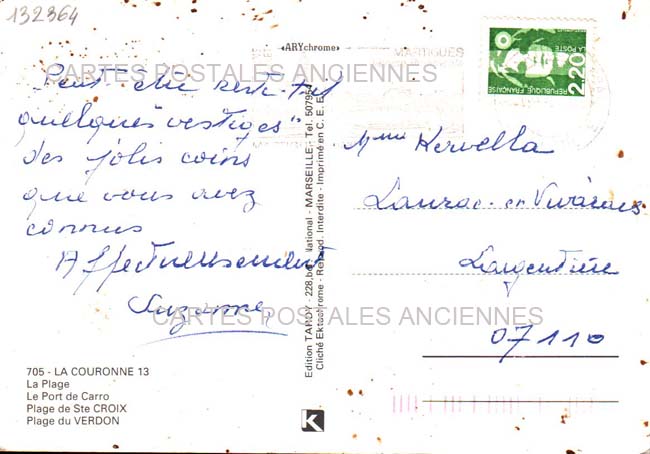 132364
«ARYchrome»
MARTIGUES
LA POSTE
2,20
REPUBLIQUE FRANÇAISE
CARTES POSTALES ANCIENNES
Peut-être reste-t-il
quelques vestiges"
des jolis coins
que vous avez
connus
Affectueusement
Suzanne
Mme Kervella
en Vivarais
Largentière
07110
CARTES POSTALES ANCIENNES
Edition TARDY - 228, National - MARSEILLE - Tel.
Cliché Ektachrome - Reprod. Interdite - Imprimé en C.E.E.
705 - LA COURONNE 13
La Plage
Le Port de Carro
Plage de Ste CROIX
Plage du VERDON
K